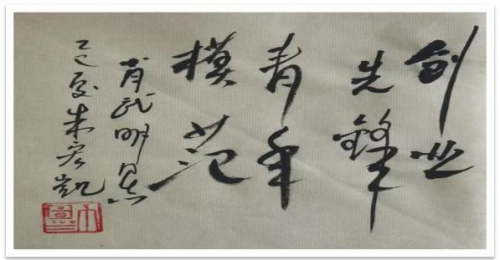 创业
先锋
青年
模范
肖武明
己亥朱宏凯